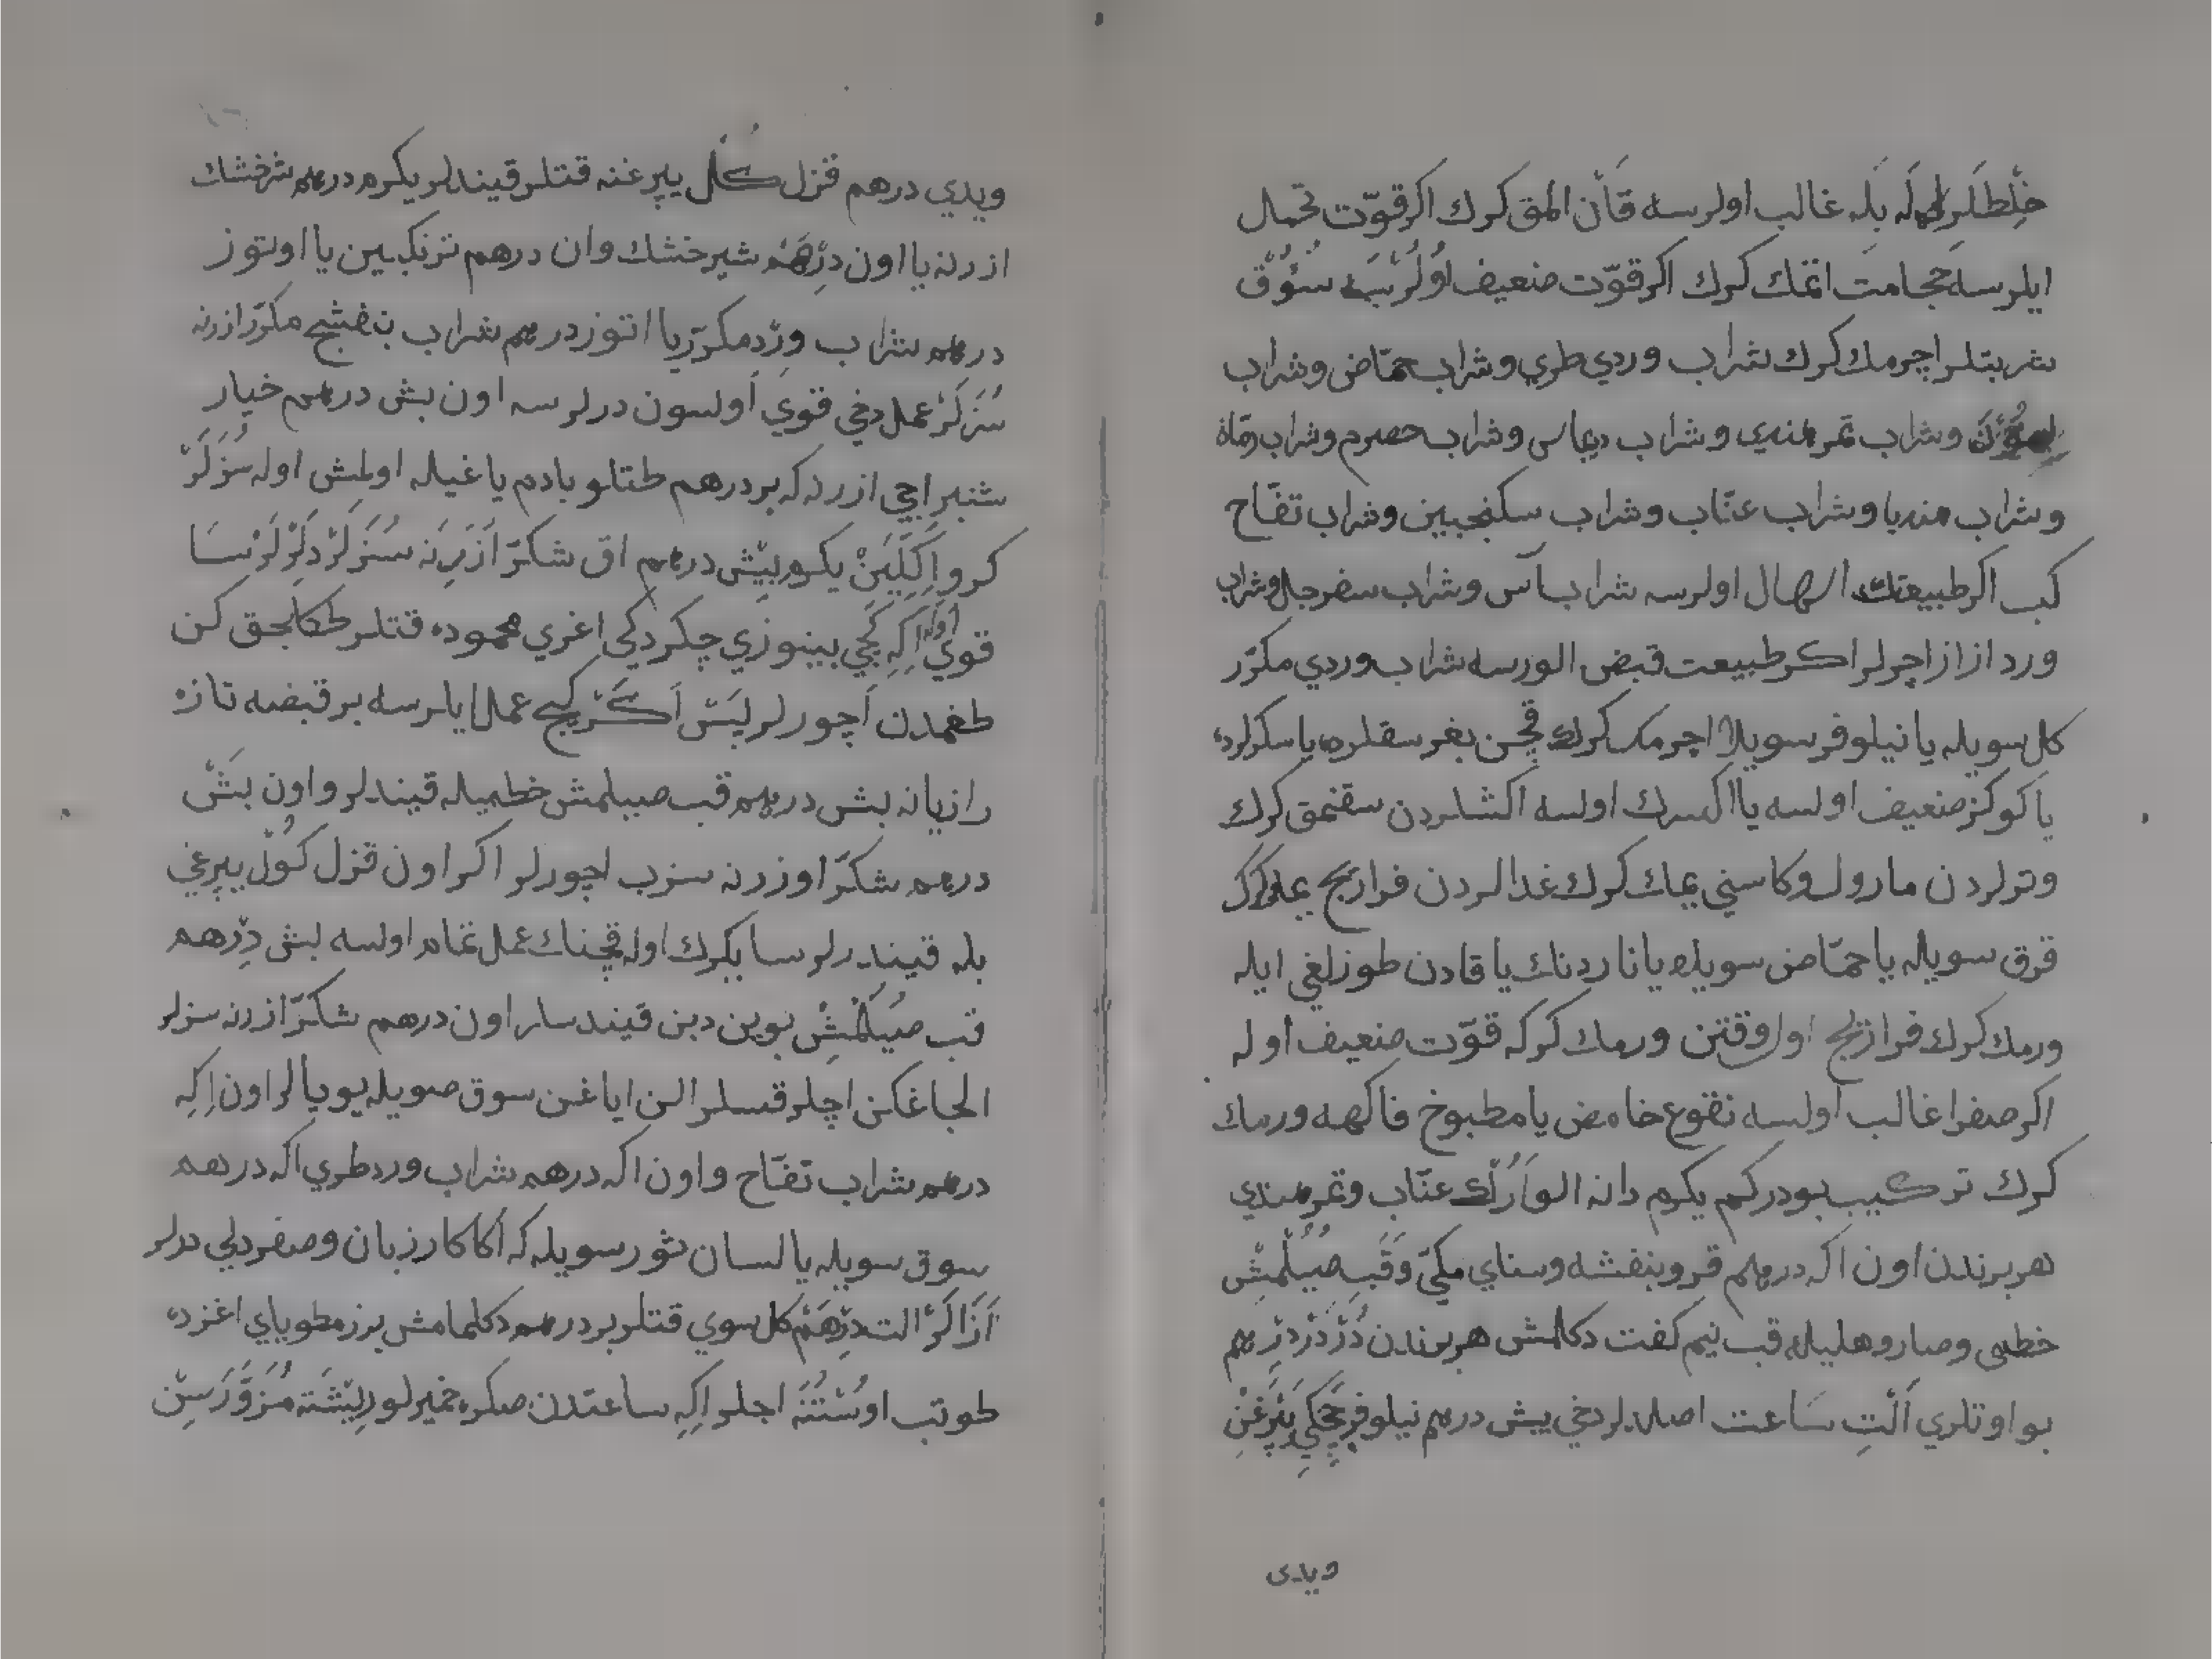 خلطلرله بله غالب اولرسه قان المق كرك اكر قوّت تحمل
ايلرسه حجامت اتمك كرك اكر قوّت ضعيف اولرسه سؤق
شربتلر اچرمك كرك شراب وردي طري وشراب حمّاض وشراب
وشراب تمر هندي وشراب ديماس وشراب حصرم وشراب رمّان
وشراب هندبا وشراب عنّاب وشراب سكنجبين وشراب تفّاح
كب اكر طبيعتك اسهال اولرسه شراب آس وشراب سفرجل وشراب
ورد از از اچرلر اكر طبيعت قبض الورسه شراب وردي مكرّر
كل سويله يا نيلوفر سويلا اچرمك كرك قچن بغرسقلرده يا سكرلرده
يا كوكز ضعيف اولسه يا اكسرك اولسه اكشلردن سقنمق كرك
وترلردن مارول وكاسني يمك كرك غدالردن فراريج يمك كرك
قرق سويله يا حمّاض سويله يا نار دنك يا قادن طوزلغي ايله
ورمك كرك فراريج اول وقتن ورمك كركه قوّت ضعيف اوله
اكر صفرا غالب اولسه نقوع حامض يا مطبوخ فاكهه ورمك
كرك تركيب بودركم يكرم دانه الو ارك عنّاب وتمر هندي
هر برندن اون اكه درهم قرو بنفشه وسناي مكيّ وقب صيلمش
خطمى وصارو هليله قب نيم كفت دكلمش هر برندن درر در درهم
بو اوتلري الت ساعت اصلدلر دخي بيش درهم نيلوفر چچكي يپرغن
ويدى
ويدي درهم قزل كل يپرغنه قتلر قيندلر يكرم درهم شرخشك
ازرنه يا اون درهم شيرخشك وان درهم ترنكبين يا اوتوز
درهم شراب ورد مكرّر يا اتوز درهم شراب بنفشج مكرّر ازرنه
سزكر عمل دخي قوي اولسون درلرسه اون بش درهم خيار
شنبر اچي ازرنه كه بر درهم طتلو بادم ياغيله اولمش اوله سزلر
كرو اكلين يكرم بيش درهم اق شكرّ ازرنه سزلر دلرلرسا
قوي اوله اكه كجي بينوزي چكردكى اغري محموده قتلر طكالجق كن
طغمدن اچورلر ليس اكر كيج عمل ايلرسه بر قبضه تازه
رازيانه بش درهم قب صيلمش خطميله قيندلر واون بش
درهم شكرّ اوزرنه سزب اچورلر اكر اون قزل كول يپرغي
بله قيندرلرسا يكرك اوله قچنك عمل تمام اولسه بش درهم
قب صيلمش بوين دبن قيندسلر اون درهم شكرّ ازرنه سزلر
الجاغكن اچلر قسلر الن اياغن سوق صويله يويالر اون اكه
درهم شراب تفّاح واون اكه درهم شراب ورد طري اكه درهم
سوق سويله يا لسان ثور سويله كه اكا كارزبان وصغر دلي درلر
ازاكر الت درهم كل سوي قتلر بر درهم دكلمامش برز مطوياي اغزده
طوتب اوستنه اجلر اكه ساعتدن صكره خميرلو ريشته مزوّرسين